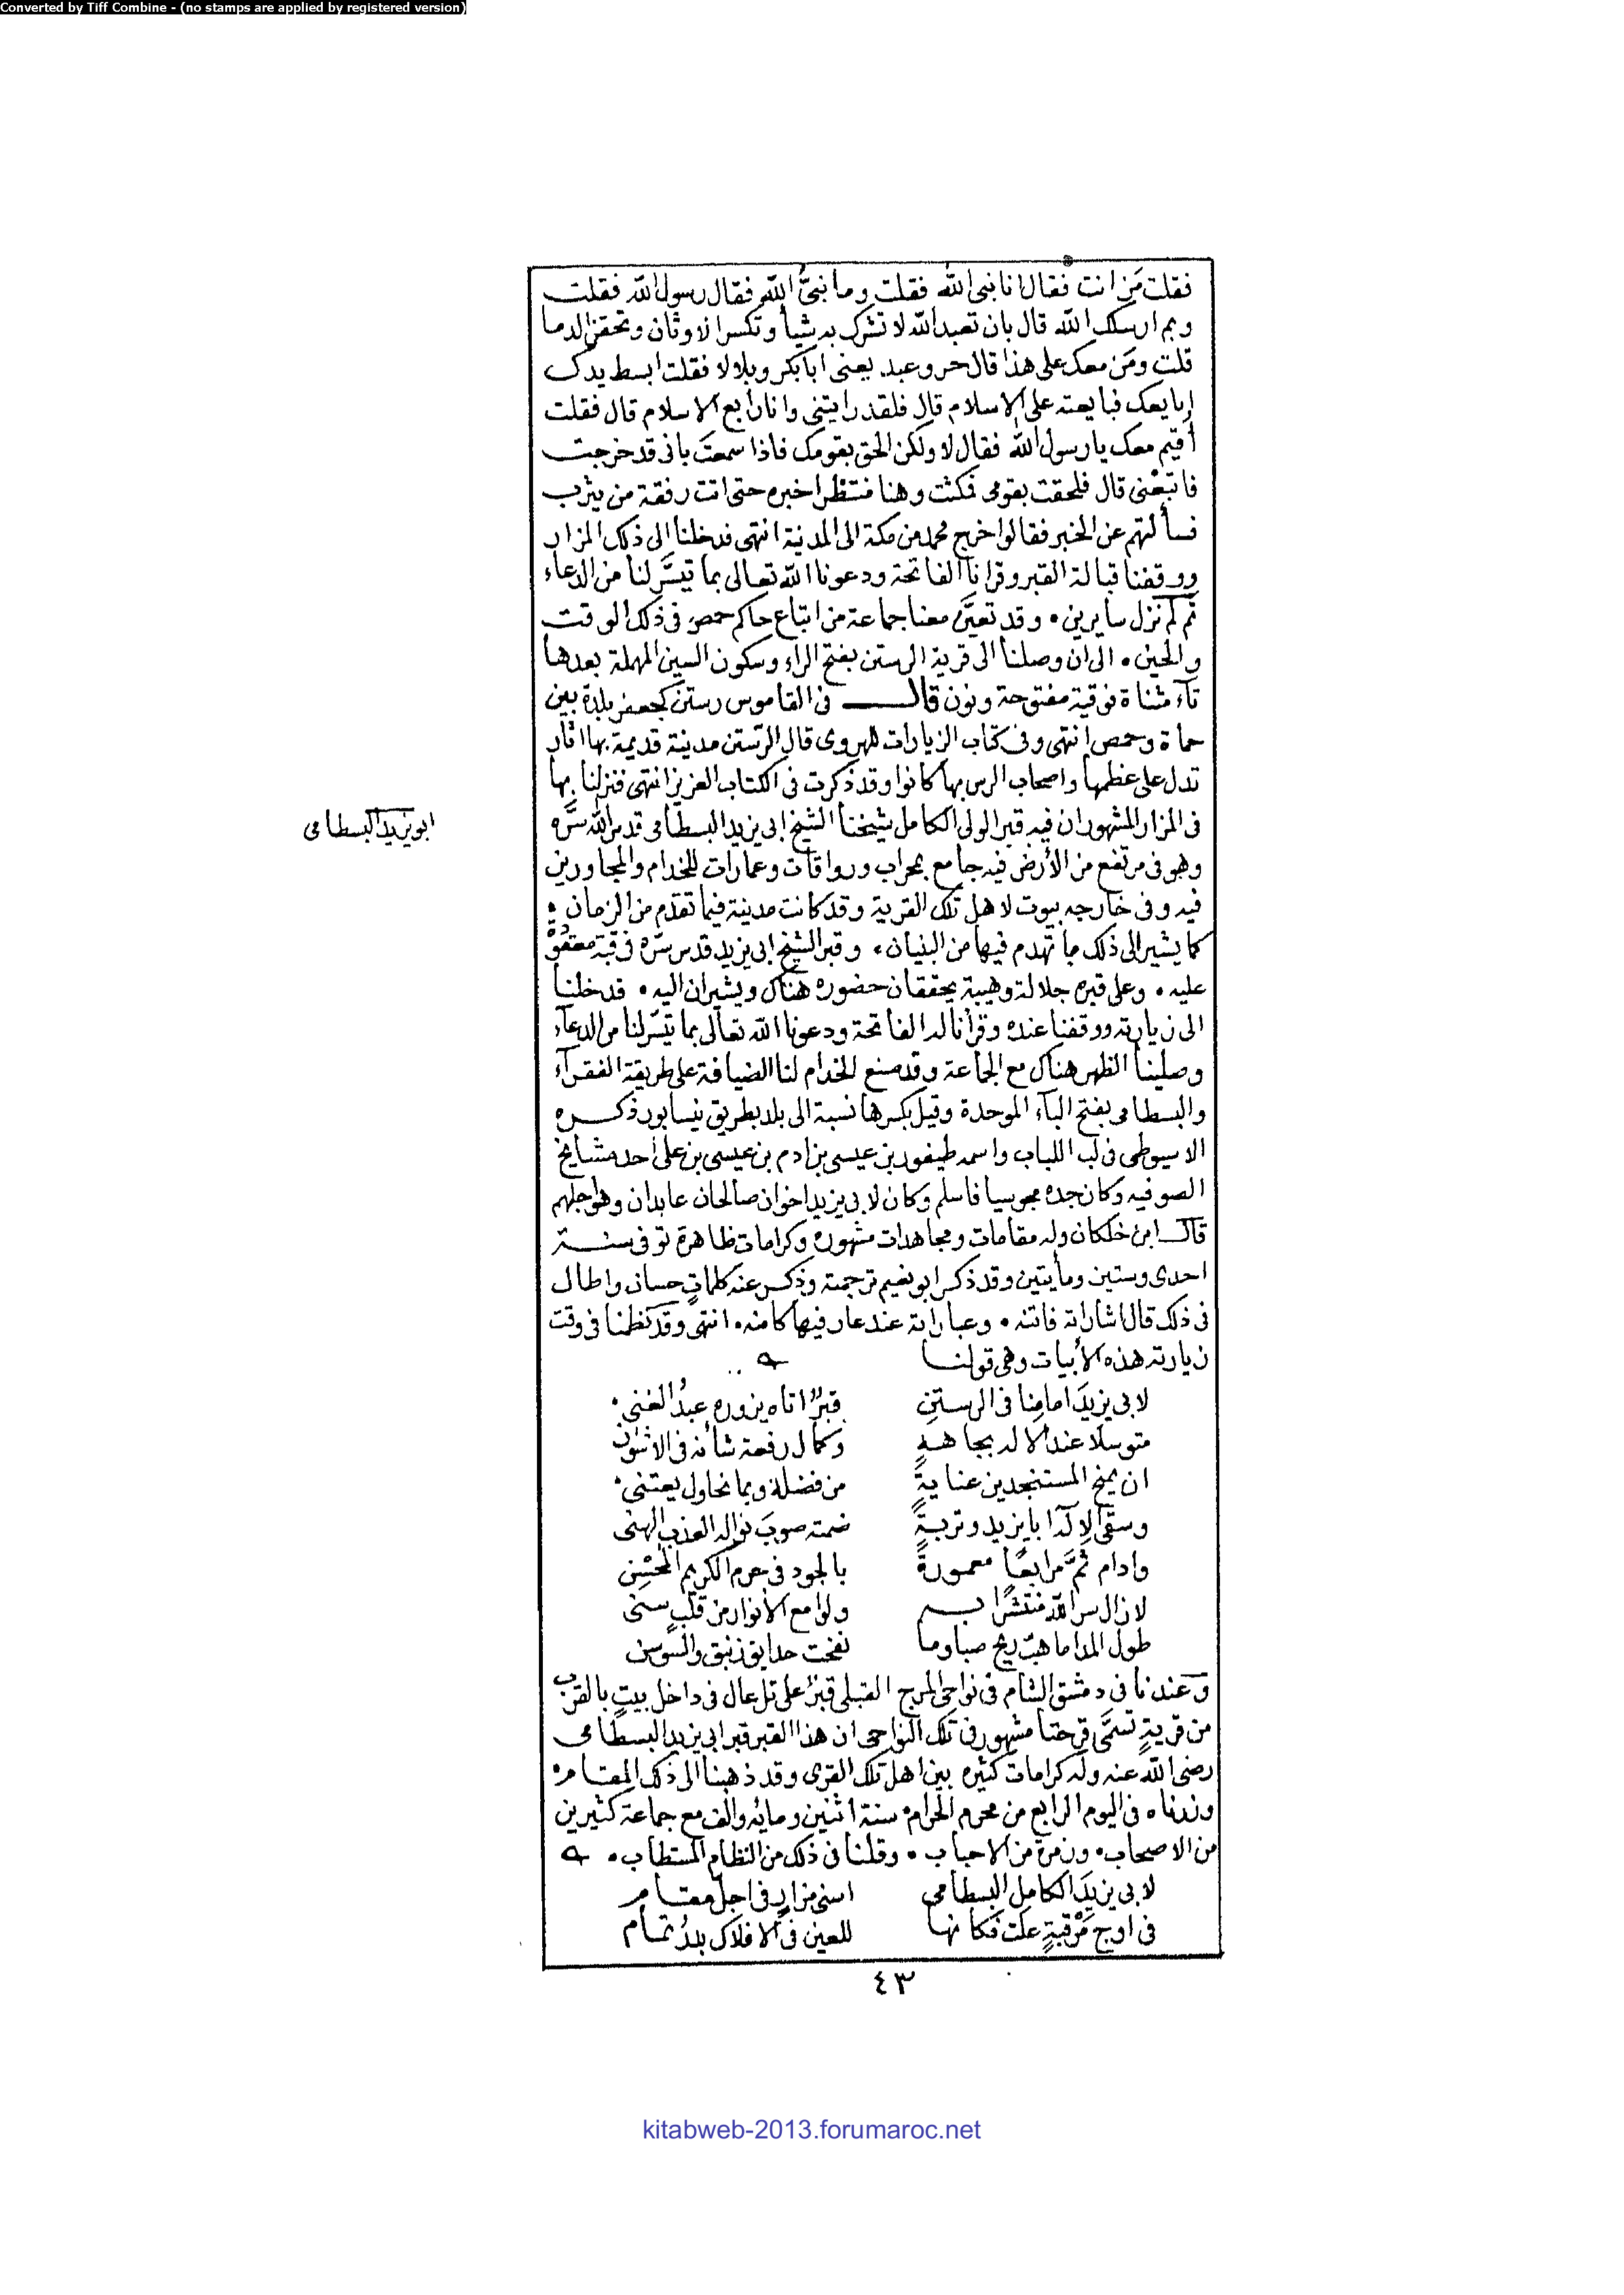 Converted by Tiff Combine - (no stamps are applied by registered version)
فقلت مَن انت فقال انا نبى الله فقلت وما نبىُّ الله فقال رسول الله فقلت
وبم ارسلك الله قال بان تعبد الله لا تشرك به شيأ وتكسر الاوثان وتحقن الدما
قلت ومَن معك على هذا قال حر وعبد يعنى ابا بكر وبلالا فقلت ابسط يدك
ابايعك فبايعته على الاسلام قال فلقد رايتنى وانا رابع الاسلام قال فقلت
أقيم معك يا رسول الله فقال لا ولكن الحق بقومك فاذا سمعتَ بانى قد خرجت
فاتبعْنى قال فلحقت بقومى فمكثت وهنا منتظرا خبره حتى اتت رفقة من يثرب
فسألتهم عن الخبر فقالوا خرج محمد من مكة الى المدينة انتهى فدخلنا الى ذلك المزار
ووقفنا قبالة القبر وقرانا الفاتحة ودعونا الله تعالى بما تيسَّر لنا من الدعاء
ثم لم نزل سايرين • وقد تعيَّن معنا جماعة من اتباع حاكم حمص فى ذلك الوقت
والحين • الى ان وصلنا الى قرية الرستن بفتح الراء وسكون السين المهملة بعدها
تآء مثناة فوقية مفتوحة ونون قال فى القاموس رستن كجعفر بلدة بين
حماة وحمص انتهى وفى كتاب الزيارات للهروى قال الرّستن مدينة قديمة بها اثار
تدل على عظمها واصحاب الرس بها كانوا وقد ذكرت فى الكتاب العزيز انتهى فنزلنا بها
فى المزار المشهور ان فيه قبر الولى الكامل شيخنا الشيخ ابى يزيد البسطامى قدس الله سرّه
ابو يزيد البسطامى
وهو فى مرتفع من الأرض فيه جامع بمحراب ورواقات وعمارات للخدام والمجاورين
فيه وفى خارجه بيوت لاهل تلك القرية وقد كانت مدينة فيما تقدم من الزمان •
كما يشير الى ذلك ما تهدم فيها من البنيان • وقبر الشيخ ابى يزيد قدس سرّه فى قبة معقودة
عليه • وعلى قبره جلالة وهيبة يحققان حضوره هناك ويشيران اليه • فدخلنا
الى زيارته ووقفنا عنده وقرأنا له الفاتحة ودعونا الله تعالى بما تيسّر لنا من الدعآء
وصلينا الظهر هناك مع الجماعة وقد صنع الخدام لنا الضيافة على طريقة الفقرآء
والبسطامى بفتح البآء الموحدة وقيل بكسرها نسبة الى بلد بطريق نيسابور ذكره
الاسيوطى فى لب اللباب واسمه طيفور بن عيسى بن ادم بن عيسى بن على احد مشايخ
الصوفيه وكان جده مجوسيا فاسلم وكان لابى يزيد اخوان صالحان عابدان وهو اجلهم
قال ابن خلكان وله مقامات ومجاهدات مشهوره وكرامات ظاهرة توفى سنة
احدى وستين ومأيتين وقد ذكر ابو نعيم ترجمته وذكر عنه كلماتٍ حسان واطال
فى ذلك قال اشاراته فاتنه • وعباراته عند عارفيها كامنه • انتهى وقد نظمنا فى وقت
زيارته هذه الأبيات وهى قولنا
لابى يزيدَ امامِنا فى الرستنِ قبرٌ اتاه يزوره عبدُ الغنى •
متوسلًا عند الاله بجاهه وكمال رفعة شأنه فى الاثنون
ان يمنح المستنجدين عنايةً من فضله وبما نحاول يعتنى •
وسقى الاِلهُ ابا يزيد وتربةً ضمته صوبَ نواله العذب الهنى
وادام ثَمَّ مرابعًا معمورةً بالجود فى حرم الكريم المحْسِن
لا زال سر الله منتشرًا به ولوامع الأنوار من قلبٍ سنى
طول المدا ما هبّت ريح صبا وما نفحت حدايق زنبق والسوسن
وعندنا فى دمشق الشام فى نواحى المرج القبلى قبرٌ على تل عال فى داخل بيتٍ بالقرب
من قريةٍ تسمَّى قرحتا مشهور فى تلك النواحى ان هذا القبر قبر ابى يزيد البسطامى
رضى الله عنه وله كرامات كثيره بين اهل تلك القرى وقد ذهبنا الى ذلك المقام •
وزرناه فى اليوم الرابع من محرم الحرام • سنة اثنين ومايه والف مع جماعة كثيرين
من الاصحاب • وزمرة من الاحباب • وقلنا فى ذلك من النظام المستطاب •
لابى يزيدَ الكامل البسطامى اسنى مزارٍ فى اجلّ مقام
فى اوج مَرْقبةٍ علت فكانها للعين فى الافلاك بدرُ تمام
٤٣
kitabweb-2013.forumaroc.net